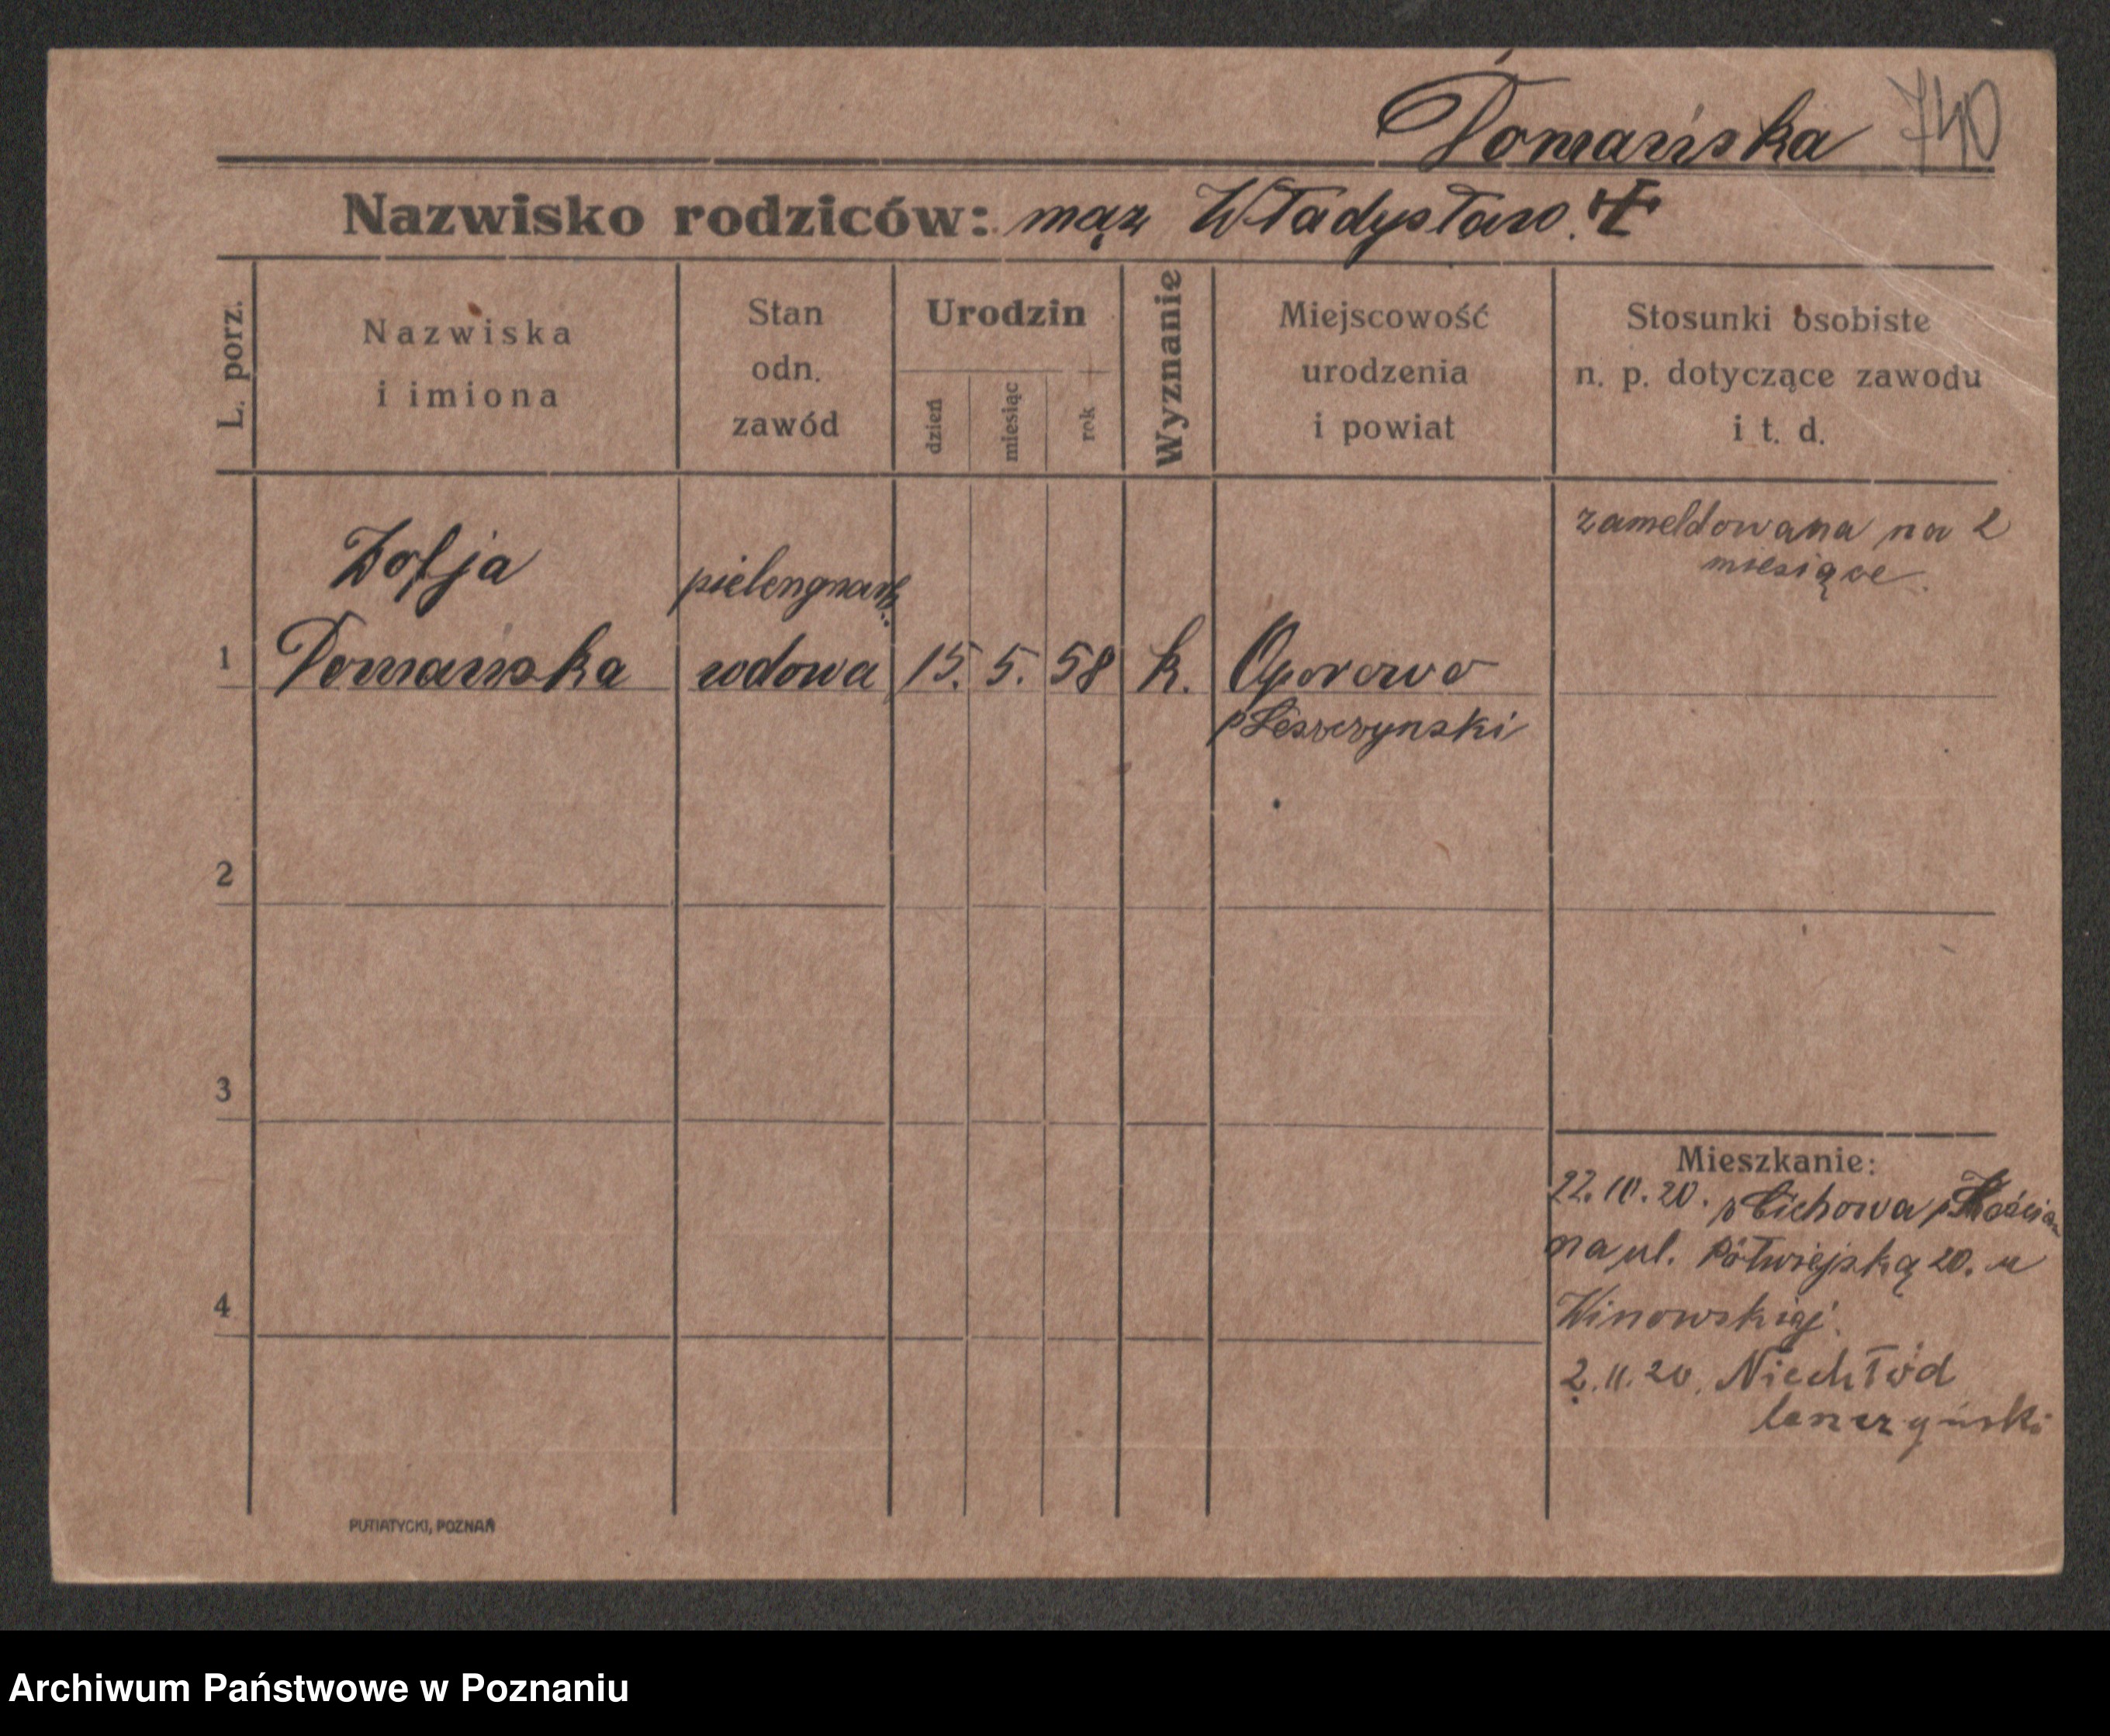 Domańska 740
Nazwisko rodziców: mąz Władysław. ✝
L. porz.
Nazwiska
i imiona
Stan
odn.
zawód
Urodzin
dzień
miesiąc
rok
Wyznanie
Miejscowość
urodzenia
i powiat
Stosunki osobiste
n. p. dotyczące zawodu
i t. d.
zameldowana na 2
miesiące.
Zofja
pielengnark.
1 Domańska wdowa 15. 5. 58 k. Oporowo
p Leszczynski
2
3
4
Mieszkanie:
22. 10. 20. p Cichowa p Kościan
na ul. Półwiejską 20. u
Winowskiej.
2. 11. 20. Niechłód
leszczyński
PUTIATYCKI, POZNAŃ
Archiwum Państwowe w Poznaniu